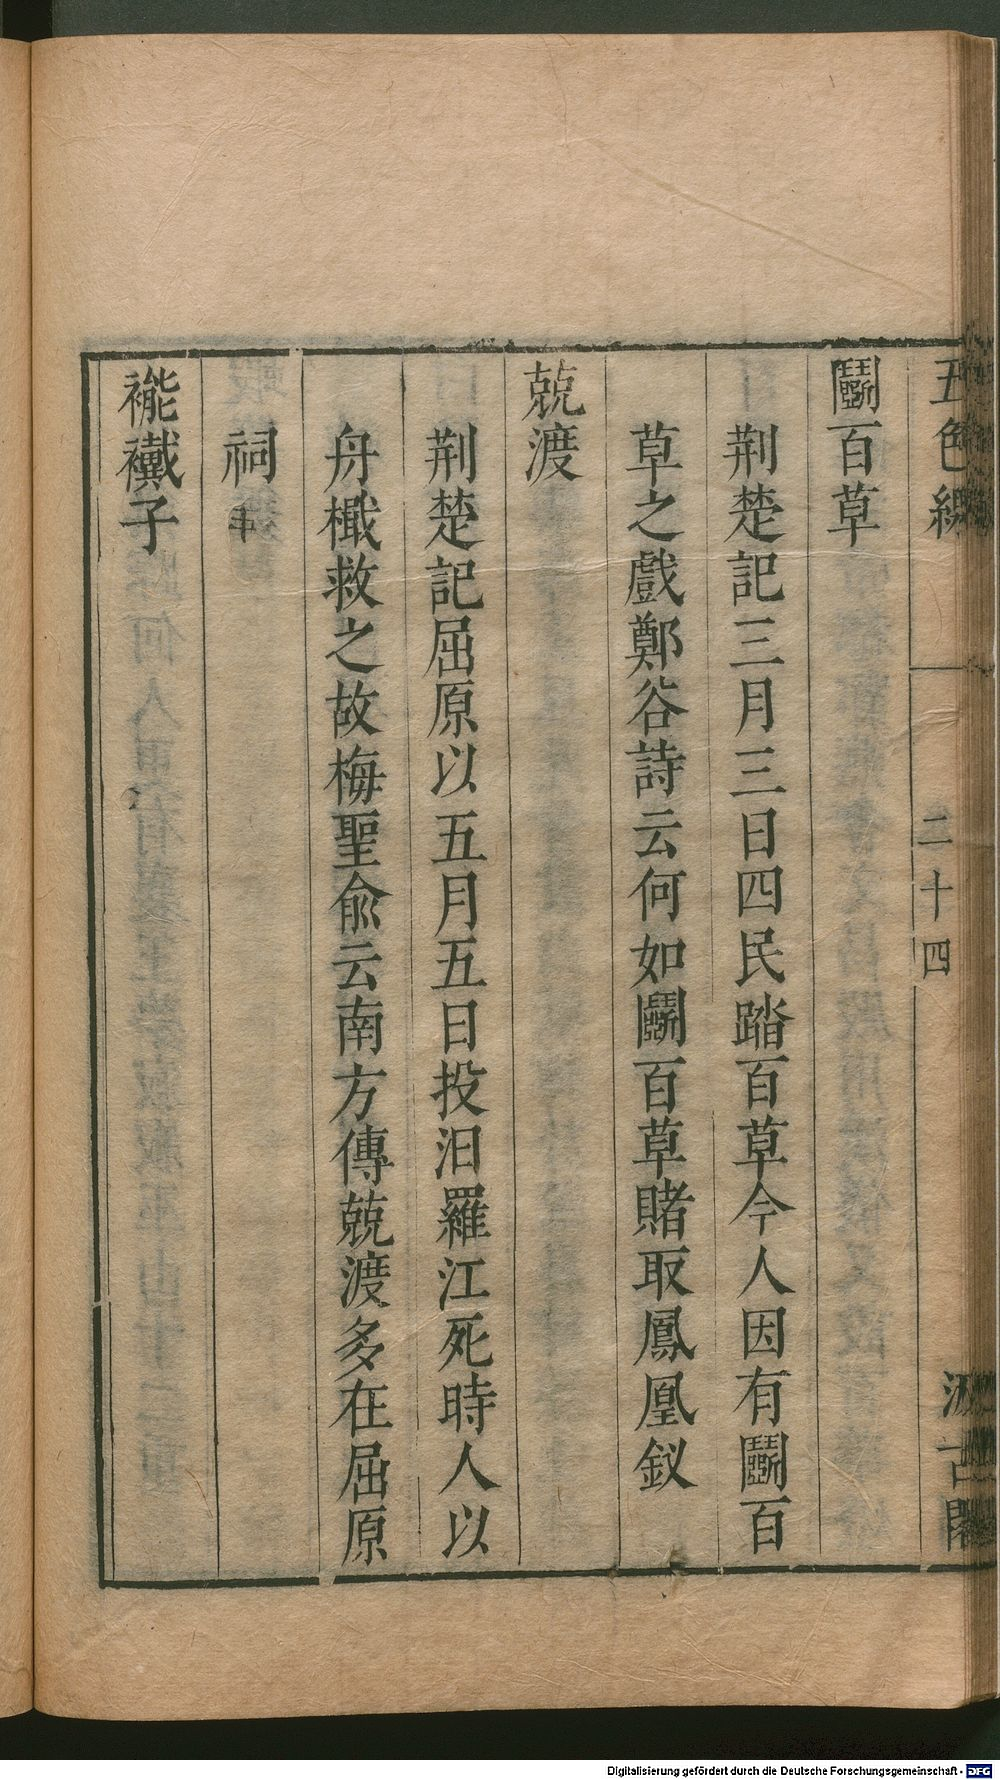 五色線
二十四
汲古閣
鬬百草
荆楚記三月三日四民踏百草今人因有鬬百
草之戲鄭谷詩云何如鬬百草賭取鳳凰釵
兢渡
荆楚記屈原以五月五日投汨羅江死時人以
舟檝救之故梅聖俞云南方傳兢渡多在屈原
祠
褦襶子
Digitalisierung gefördert durch die Deutsche Forschungsgemeinschaft - DFG